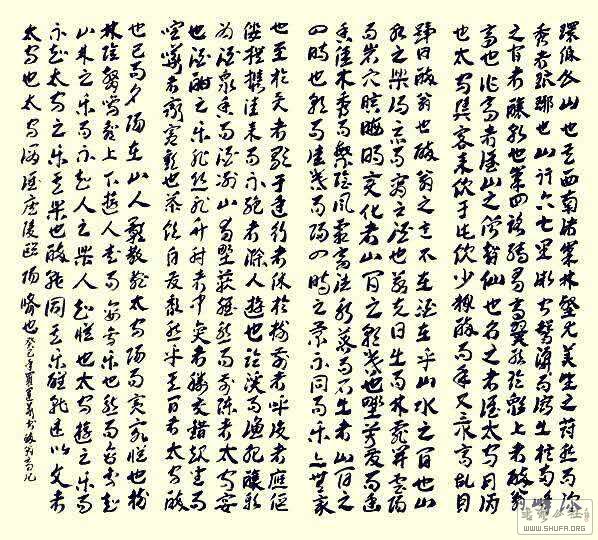 環滁皆山也其西南諸峰林壑尤美望之蔚然而深
秀者琅琊也山行六七里漸聞聲潺而瀉出於兩峰
之間者釀泉也峰回路轉有亭翼然臨於泉上者醉翁
亭也作亭者誰山之僧智仙也名之者誰太守自謂
也太守與客來飲于此飲少輒醉而年又最高故自
號曰醉翁也醉翁之意不在酒在乎山水之間也山
水之樂得之心而寓之酒也若夫日出而林霏開雲歸
而岩穴暝晦明變化者山間之朝暮也野芳發而幽
香佳木秀而繁陰風霜高潔水落而石出者山間之
四時也朝而往暮而歸四時之景不同而樂亦無窮
也至於負者歌于途行者休於樹前者呼後者應傴
僂提攜往來而不絕者滁人遊也臨溪而漁釀泉
為酒泉香而酒冽山肴野蔌雜然而前陳者太守宴
也宴酣之樂非絲非竹射者中弈者勝交錯坐而
喧嘩者眾賓歡也蒼顏白髮頹然乎其間者太守醉
也已而夕陽在山人影散亂太守歸而賓客從也樹
林陰翳鳴聲上下遊人去而禽鳥樂也然而禽鳥知
山林之樂而不知人之樂人知從也太守遊之樂而
不知太守之樂其樂也醉能同其樂醒能述以文者
太守也太守謂誰廬陵歐陽脩也
癸巳年賈運書醉翁亭記
書法公社
WWW.SHUFA.ORG